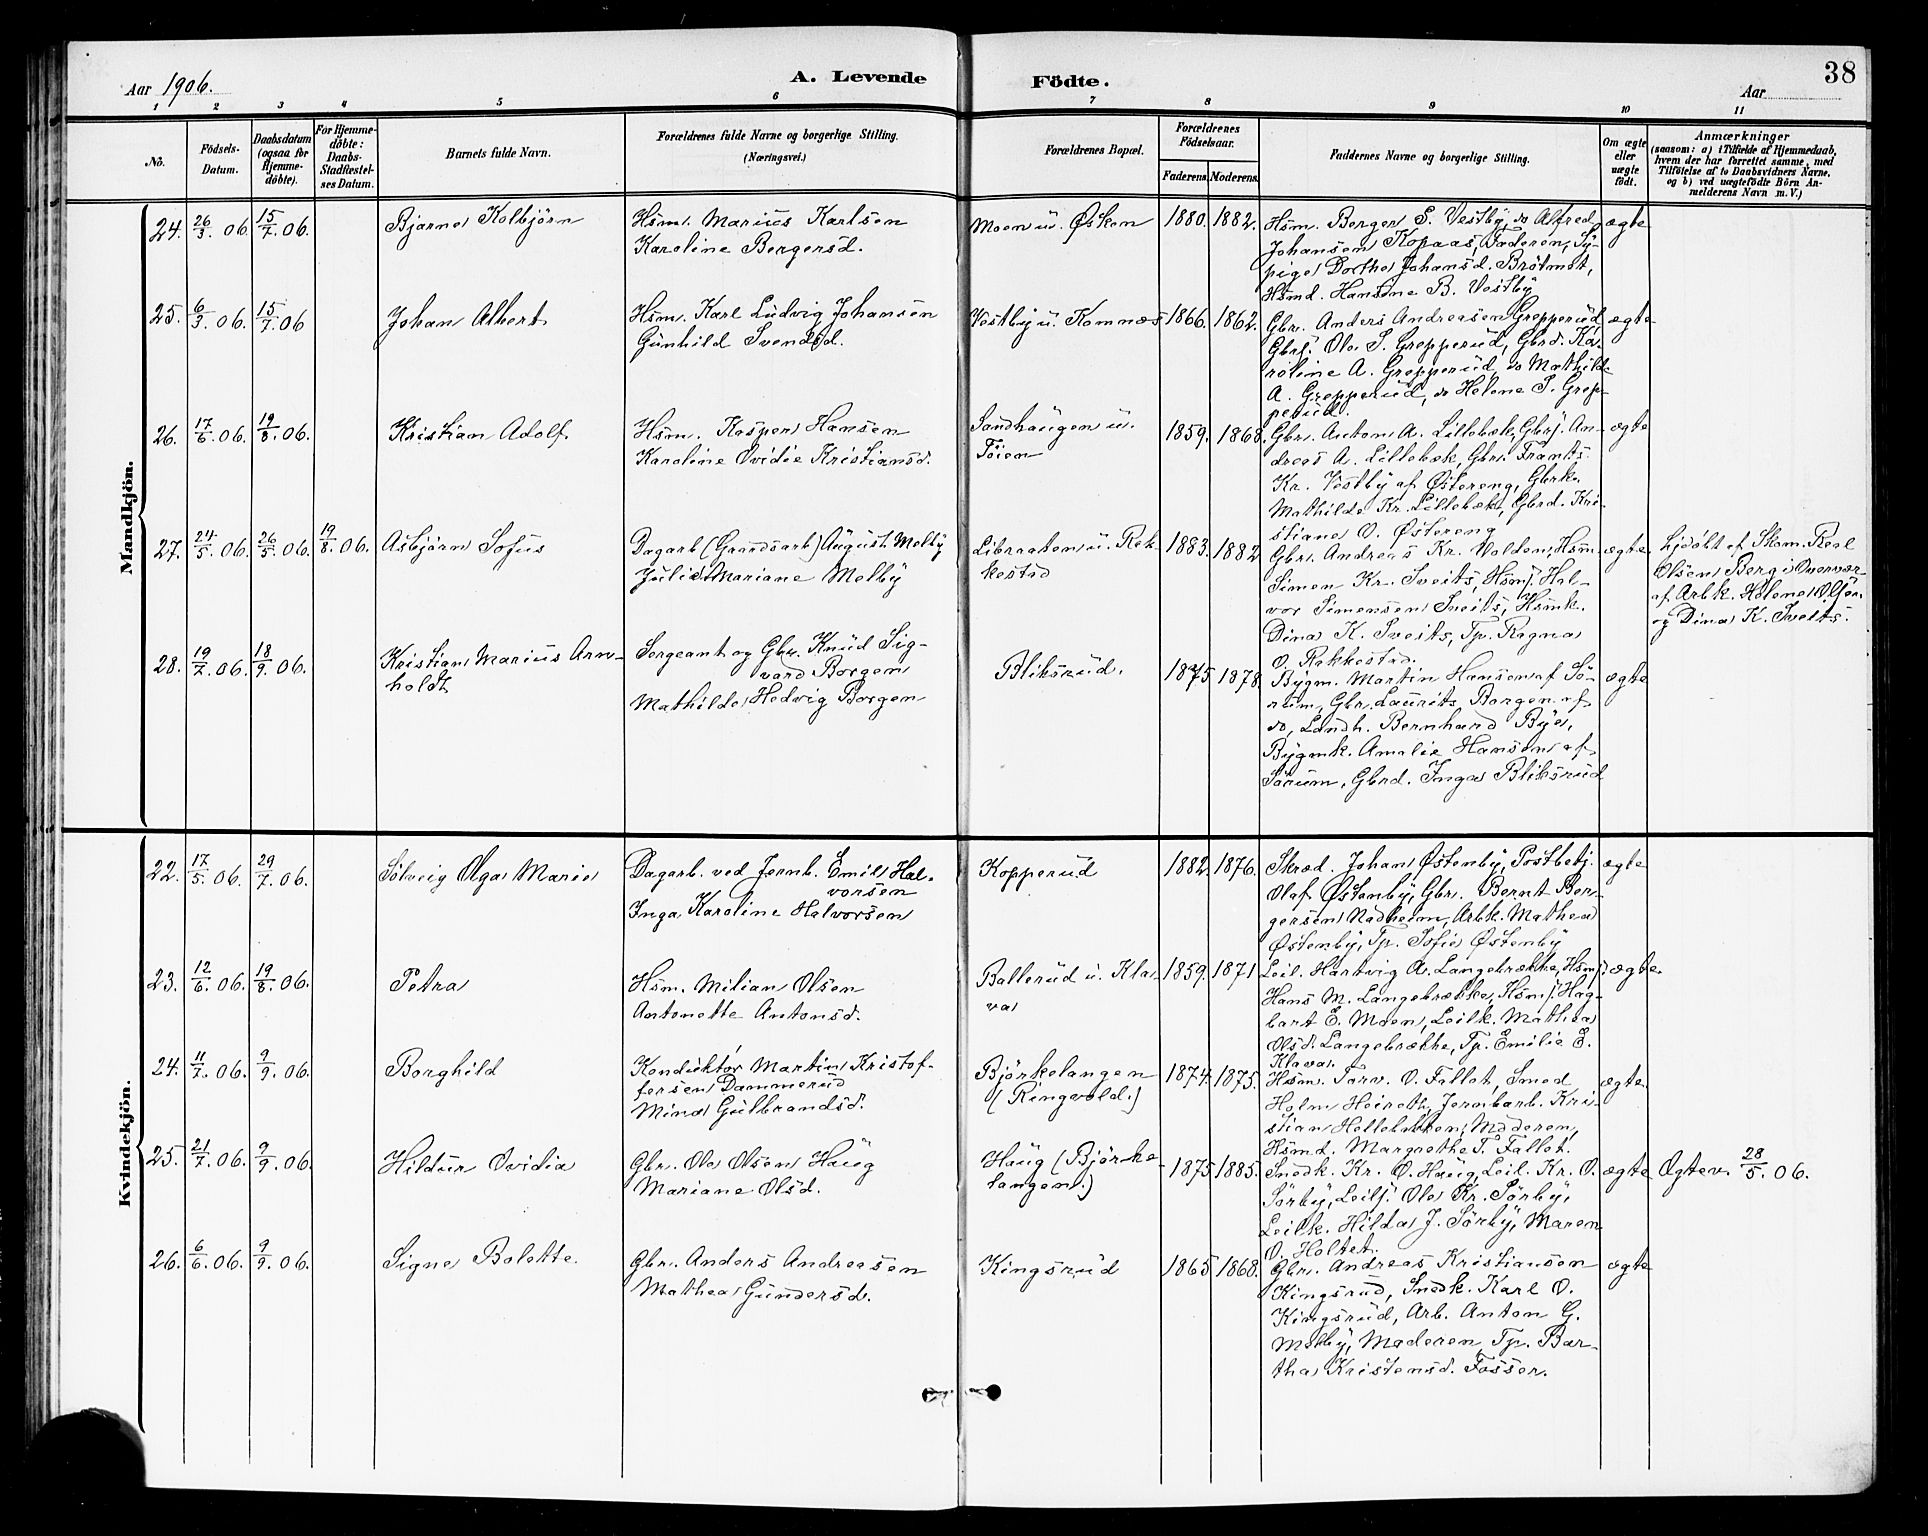 Aar 1906.
A. Levende
Födte.
38
Aar
1 2 3 4 5 6 7 8 9 10 11
No.
Födsels-Datum.
Daabsdatum (ogsaa for Hjemme-döbte).
For Hjemme-döbte: Daabs-Stadfæstel-ses Datum.
Barnets fulde Navn.
Forældrenes fulde Navne og borgerlige Stilling. (Næringsvei.)
Forældrenes Bopæl.
Forældrenes Födselsaar.
Faderens. Moderens.
Faddernes Navne og borgerlige Stilling.
Om ægte eller uægte födt.
Anmærkninger
(saasom: a) i Tilfælde af Hjemmedaab,
hvem der har forrettet samme, med
Tilföielse af to Daabsvidners Navne,
og b) ved uægtefödte Börn An-
melderens Navn m. V.)
Mandkjön.
24. 26/3 06. 15/7 06. Bjarne Kolbjörn
Hsm. Marius Karlsen
Karoline Bergersd.
Moen u. Østen 1880. 1882.
Hsm. Berger S. Vestby, do Alfred
Johansen Kopaas, Faderen, Sy-
pige Dorthe Johansd. Bråtmot,
Hsmd. Hansine B. Vestby
ægte
25. 6/3 06. 15/7 06 Johan Albert
Hsm. Karl Ludvig Johansen
Gunhild Svendsd.
Vestby u. Komnæs 1866. 1862.
Gbr. Anders Andreasen Grepperud
Gbrs. Ole S. Grepperud, Gbrd. Ka-
roline A. Grepperud, do Mathilde
A. Grepperud, do Helene S. Grep-
perud.
ægte
26. 17/6 06. 19/8 06. Kristian Adolf.
Hsm. Kasper Hansen
Karoline Ovidie Kristiansd.
Sandhaugen u.
Töien
1859. 1868.
Gbr. Anton A. Lillebæk, Gbrs. An-
dreas A. Lillebæk, Gbr. Frants
Kr. Vestby af Østereng, Gbrk.
Mathilde Kr. Lillebæk, Gbrd. Kri-
stiane O. Østereng
ægte
27. 24/5 06. 26/5 06. 19/8 06. Asbjörn Sofus
Dagarb (Gaardsarb) August Melby
Julie Mariane Melby
Libraaten u. Rak-
kestad
1883. 1882
Gbr. Andreas Kr. Volden, Hsm.
Simen Kr. Sveits, Hsms. Hal-
vor Simensen Sveits, Hsmk.
Dina K. Sveits, Tp. Ragna
O. Rakkestad.
ægte
Hjdöbt af Skom. Real
Olsen Berg i Overvær
af Arbk. Helene Olsen
og Dina K. Sveits.
28. 19/7 06. 18/9 06. Kristian Marius Arn-
holdt
Sergeant og Gbr. Knud Sig-
vard Borgen
Mathilde Hedvig Borgen
Bliksrud. 1875 1878.
Bygm. Martin Hansen af Sö-
rum, Gbr. Laurits Borgen af
do, Landh. Bernhard Bye,
Bygmk. Amalie Hansen af
Sörum, Gbrd. Inga Bliksrud
ægte
Kvindekjön.
22. 17/5 06. 29/7 06. Solveig Olga Marie
Dagarb. ved Jernb. Emil Hal-
vorsen
Inga Karoline Halvorsen
Kopperud 1882. 1876.
Skræd. Johan Østenby, Postbetj.
Olaf Østenby, Gbr. Bernt Ber-
gersen Nadheim, Arbk. Mathea
Østenby, Tp. Sofie Østenby
ægte
23. 12/6 06. 19/8 06. Petra
Hsm. Milian Olsen
Antonette Antonsd.
Ballerud u. Kla-
va
1859. 1871
Leil. Hartvig A. Langebrække, Hsms.
Hans M. Langebrække, Hsms. Hag-
bart E. Moen, Leilk. Mathea
Olsd. Langebrække, Tp. Emilie E.
Klava.
ægte.
24. 11/7 06. 9/9 06. Borghild
Konduktör Martin Kristof-
fersen Dammerud
Mina Gulbrandsd.
Björkelangen
(Ringvold.)
1874. 1875.
Hsm. Tarv. O. Fallet, Smed
Holm Heireth, Jernbarb. Kri-
stian Hellebækken, Moderen,
Hsmd. Margrethe T. Fallet.
ægte.
25. 21/7 06. 9/9 06. Hildur Ovidia
Gbr. Ole Olsen Haug
Mariane Olsd.
Haug (Björke-
langen.)
1875 1885.
Snedk. Kr. O. Haug, Leil. Kr. O.
Sörby, Leils. Ole Kr. Sörby,
Leilk. Hilda J. Sörby, Maren
O. Holtet.
ægte Ægtev. 28/5 06.
26. 6/6 06. 9/9 06. Signe Bolette.
Gbr. Anders Andreasen
Mathea Gundersd.
Kingsrud 1865 1868.
Gbr. Andreas Kristiansen
Kingsrud, Snedk. Karl O.
Kingsrud, Arb. Anton G.
Melby, Moderen, Tp. Bar-
tha Kristensd. Fosser.
ægte